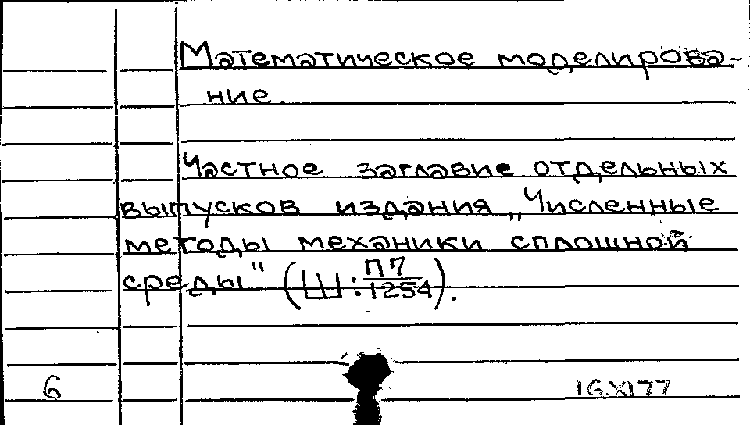 Математическое моделирова-
ние.
Частное заглавие отдельных
выпусков издания „Численные
методы механики сплошной
среды" (Ш: П7/1254).
6 16.XI77